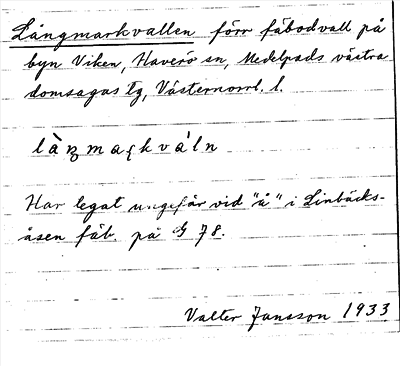 Långmarkvallen förr fäbodvall på
byn Viken, Haverö sn, Medelpads västra
domsagas tg, Västernorrl. l.
làŋmaɽkváln
Har legat ungefär vid "å" i Linbäcks-
åsen fäb. på G 78.
Valter Jansson 1933